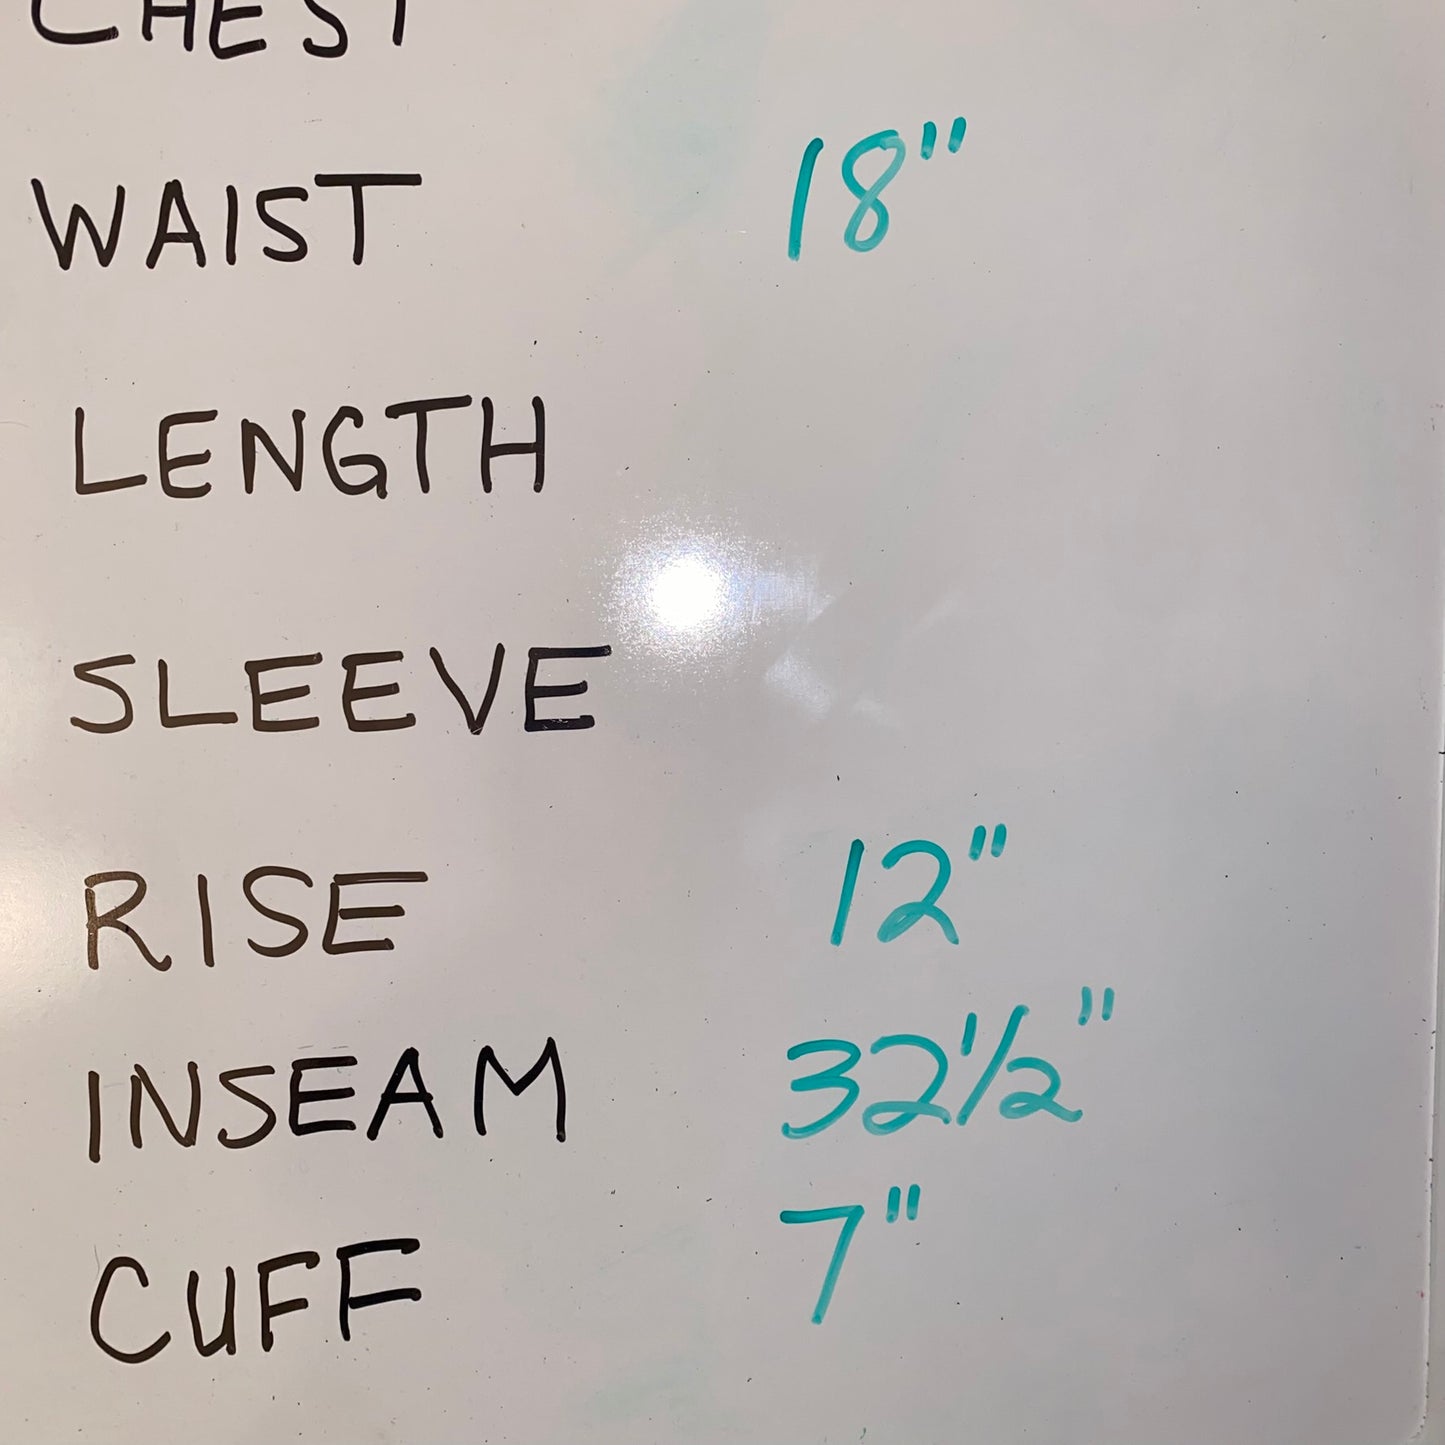 CHEST
WAIST 18"
LENGTH
SLEEVE
RISE 12"
INSEAM 32 1/2"
CUFF 7"